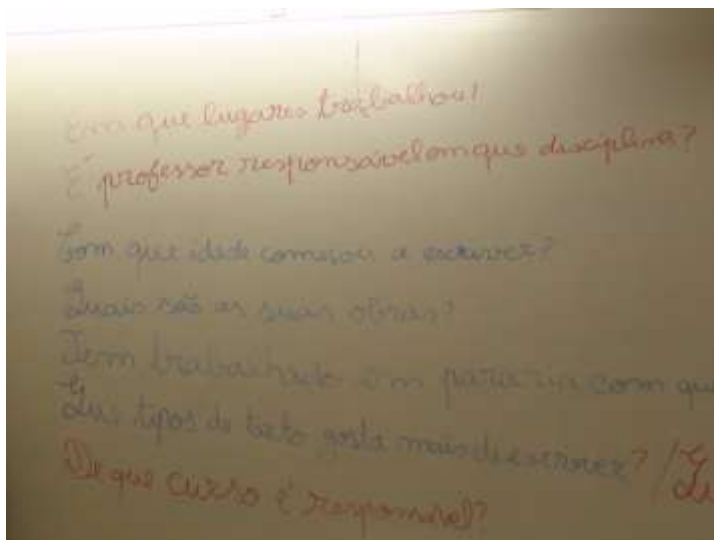 Em que lugares trabalhou?
É professor responsável em que disciplina?
Com que idade começou a escrever?
Quais são as suas obras?
Tem trabalhado em parceria com qu
Que tipos de texto gosta mais de escrever? /
De que curso é responsável?